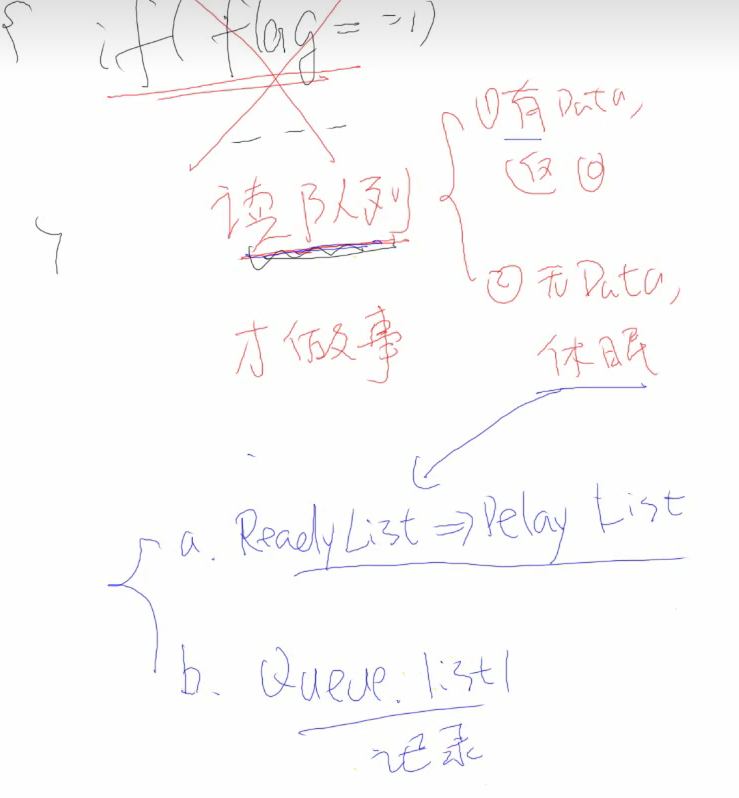 { if( flag = = 1)
① 有 Data,
返回
读队列
}
② 无 Data,
才做事
休眠
a. Ready List => Delay List
b. Queue. list1
记录